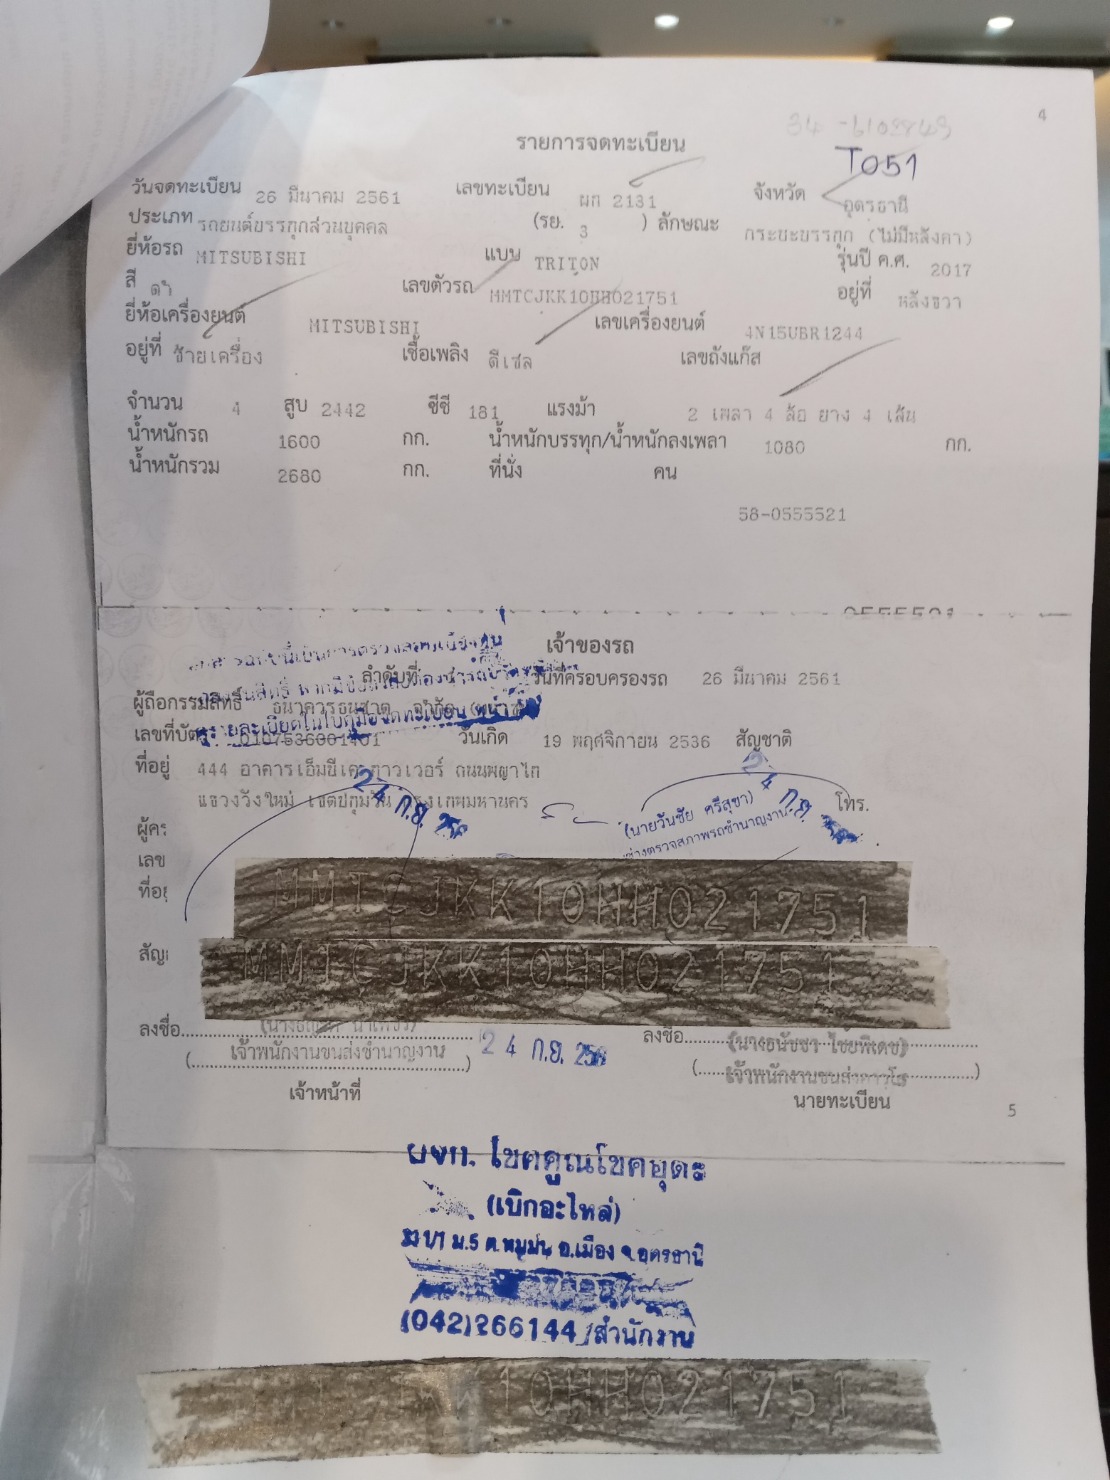 4
T051
รายการจดทะเบียน
วันจดทะเบียน 26 มีนาคม 2561 เลขทะเบียน ผก 2131 จังหวัด อุดรธานี
ประเภท รถยนต์บรรทุกส่วนบุคคล (รย. 3 ) ลักษณะ กระบะบรรทุก (ไม่มีหลังคา)
ยี่ห้อรถ MITSUBISHI แบบ TRITON รุ่นปี ค.ศ. 2017
สี ดำ เลขตัวรถ MMTCJKK10HH021751 อยู่ที่ หลังขวา
ยี่ห้อเครื่องยนต์ MITSUBISHI เลขเครื่องยนต์ 4N15UBR1244
อยู่ที่ ซ้ายเครื่อง เชื้อเพลิง ดีเซล เลขถังแก๊ส
จำนวน 4 สูบ 2442 ซีซี 181 แรงม้า 2 เพลา 4 ล้อ ยาง 4 เส้น
น้ำหนักรถ 1600 กก. น้ำหนักบรรทุก/น้ำหนักลงเพลา 1080 กก.
น้ำหนักรวม 2680 กก. ที่นั่ง คน
58-0555521
เจ้าของรถ
ลำดับที่ วันที่ครอบครองรถ 26 มีนาคม 2561
ผู้ถือกรรมสิทธิ์ ธนาคารธนชาต จำกัด
รายละเอียดในใบคู่มือจดทะเบียน หน้า
เลขที่บัตร 0107536001401 วันเกิด 19 พฤศจิกายน 2536 สัญชาติ
ที่อยู่ 444 อาคารเอ็มบีเค ทาวเวอร์ ถนนพญาไท
แขวงวังใหม่ เขตปทุมวัน กรุงเทพมหานคร โทร.
24 ก.ย. 24 ก.ย.
(นายวันชัย ศรีสุขา)
ช่างตรวจสภาพรถชำนาญงาน
ผู้คร
เลข
ที่อยู่
MMTCJKK10HH021751
สัญ
MMTCJKK10HH021751
ลงชื่อ 24 ก.ย. ลงชื่อ
(เจ้าพนักงานขนส่งชำนาญงาน)
เจ้าหน้าที่ นายทะเบียน
5
ผจก. โชคคูณโชคอุดร
(เบิกอะไหล่)
ม.5 ต.หมูม่น อ.เมือง จ.อุดรธานี
(042)266144/สำนักงาน
JKK10HH021751